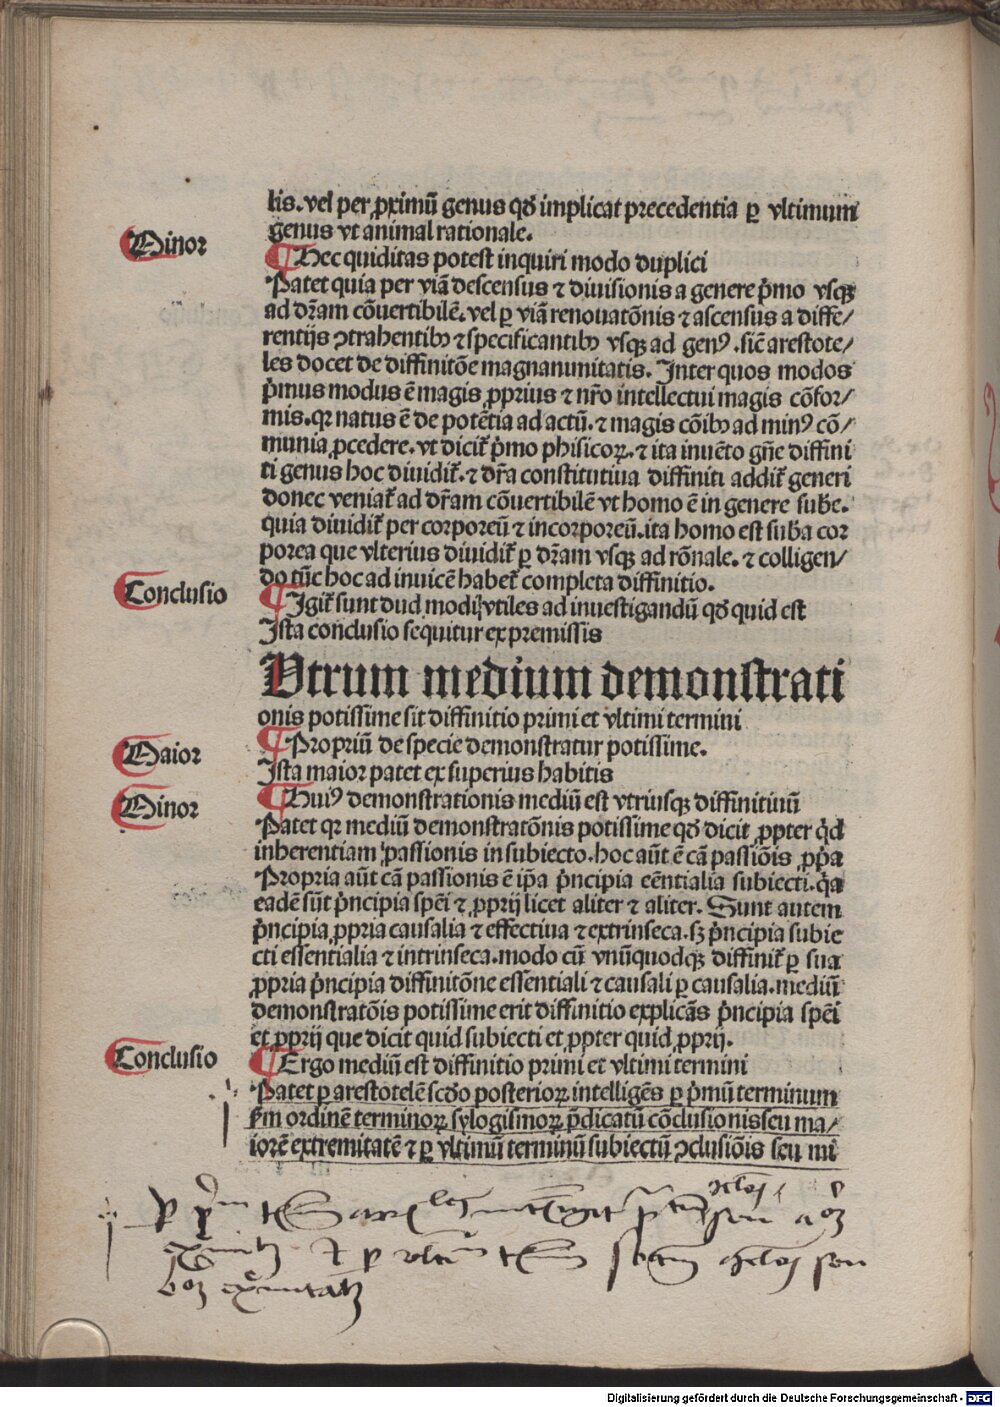 lis.vel per ꝓximū genus qđ implicat precedentia ꝑ vltimum
genus vt animal rationale.
Minor
¶ Hec quiditas potest inquiri modo duplici
Patet quia per viā descensus ⁊ diuisionis a genere pͥmo vsqꝫ
ad dr̄am cōuertibilē.vel ꝑ viā renouatōnis ⁊ ascensus a diffe/
rentijs ꝯtrahentibꝫ ⁊ specificantibꝫ vsqꝫ ad genꝰ .sic̄ arestote/
les docet de diffinitōe magnanimitatis. Inter quos modos
pͥmus modus ē magis ꝓprius ⁊ nr̄o intellectui magis cōfor/
mis.qꝛ natus ē de potētia ad actū.⁊ magis cōibꝫ ad minꝰ cō/
munia ꝓcedere.vt dicit᷑ pͥmo phisicoꝝ.⁊ ita inuēto gn̄e diffini
ti genus hoc diuidit᷑.⁊ dr̄a constitutiua diffiniti addit᷑ generi
donec veniat᷑ ad dr̄am cōuertibilē vt homo ē in genere sub̄e.
quia diuidit᷑ per corporeū ⁊ incorporeū.ita homo est sub̄a cor
porea que vlterius diuidit᷑ ꝑ dr̄am vsqꝫ ad rōnale.⁊ colligen/
do tūc hoc ad inuicē habet᷑ completa diffinitio.
Conclusio
¶ Igit᷑ sunt duo modi vtiles ad inuestigandū qđ quid est
Ista conclusio sequitur ex premissis
Vtrum medium demonstrati
onis potissime sit diffinitio primi et vltimi termini
Maior
¶ Propriū de specie demonstratur potissime.
Ista maior patet ex superius habitis
Minor
¶ Huiꝰ demonstrationis mediū est vtriusqꝫ diffinitiuū
Patet qꝛ mediū demonstratōnis potissime qđ dicit ꝓpter qͥd
inherentiam passionis in subiecto.hoc aūt ē cā passiōis ꝓpͥa
Propria aūt cā passionis ē ip̄a pͥncipia eēntialia subiecti.qͥa
eadē sūt pͥncipia spēi ⁊ ꝓprij licet aliter ⁊ aliter. Sunt autem
pͥncipia ꝓpria causalia ⁊ effectiua ⁊ extrinseca.sꝫ pͥncipia subie
cti essentialia ⁊ intrinseca.modo cū vnūquodqꝫ diffinit᷑ ꝑ sua
ꝓpria pͥncipia diffinitōne essentiali ⁊ causali ꝑ causalia.mediū
demonstratōis potissime erit diffinitio explicās pͥncipia spēi
et ꝓprij que dicit quid subiecti et ꝓpter quid ꝓprij.
Conclusio
¶ Ergo mediū est diffinitio primi et vltimi termini
Patet ꝑ arestotelē scđo posterioꝝ intelligēs ꝑ pͥmū terminum
ẜm ordinē terminoꝝ sylogismoꝝ p̄dicatū cōclusionis seu ma/
iorē extremitatē ⁊ ꝑ vltimū terminū subiectū ꝯclusiōis seu mi
Digitalisierung gefördert durch die Deutsche Forschungsgemeinschaft - DFG